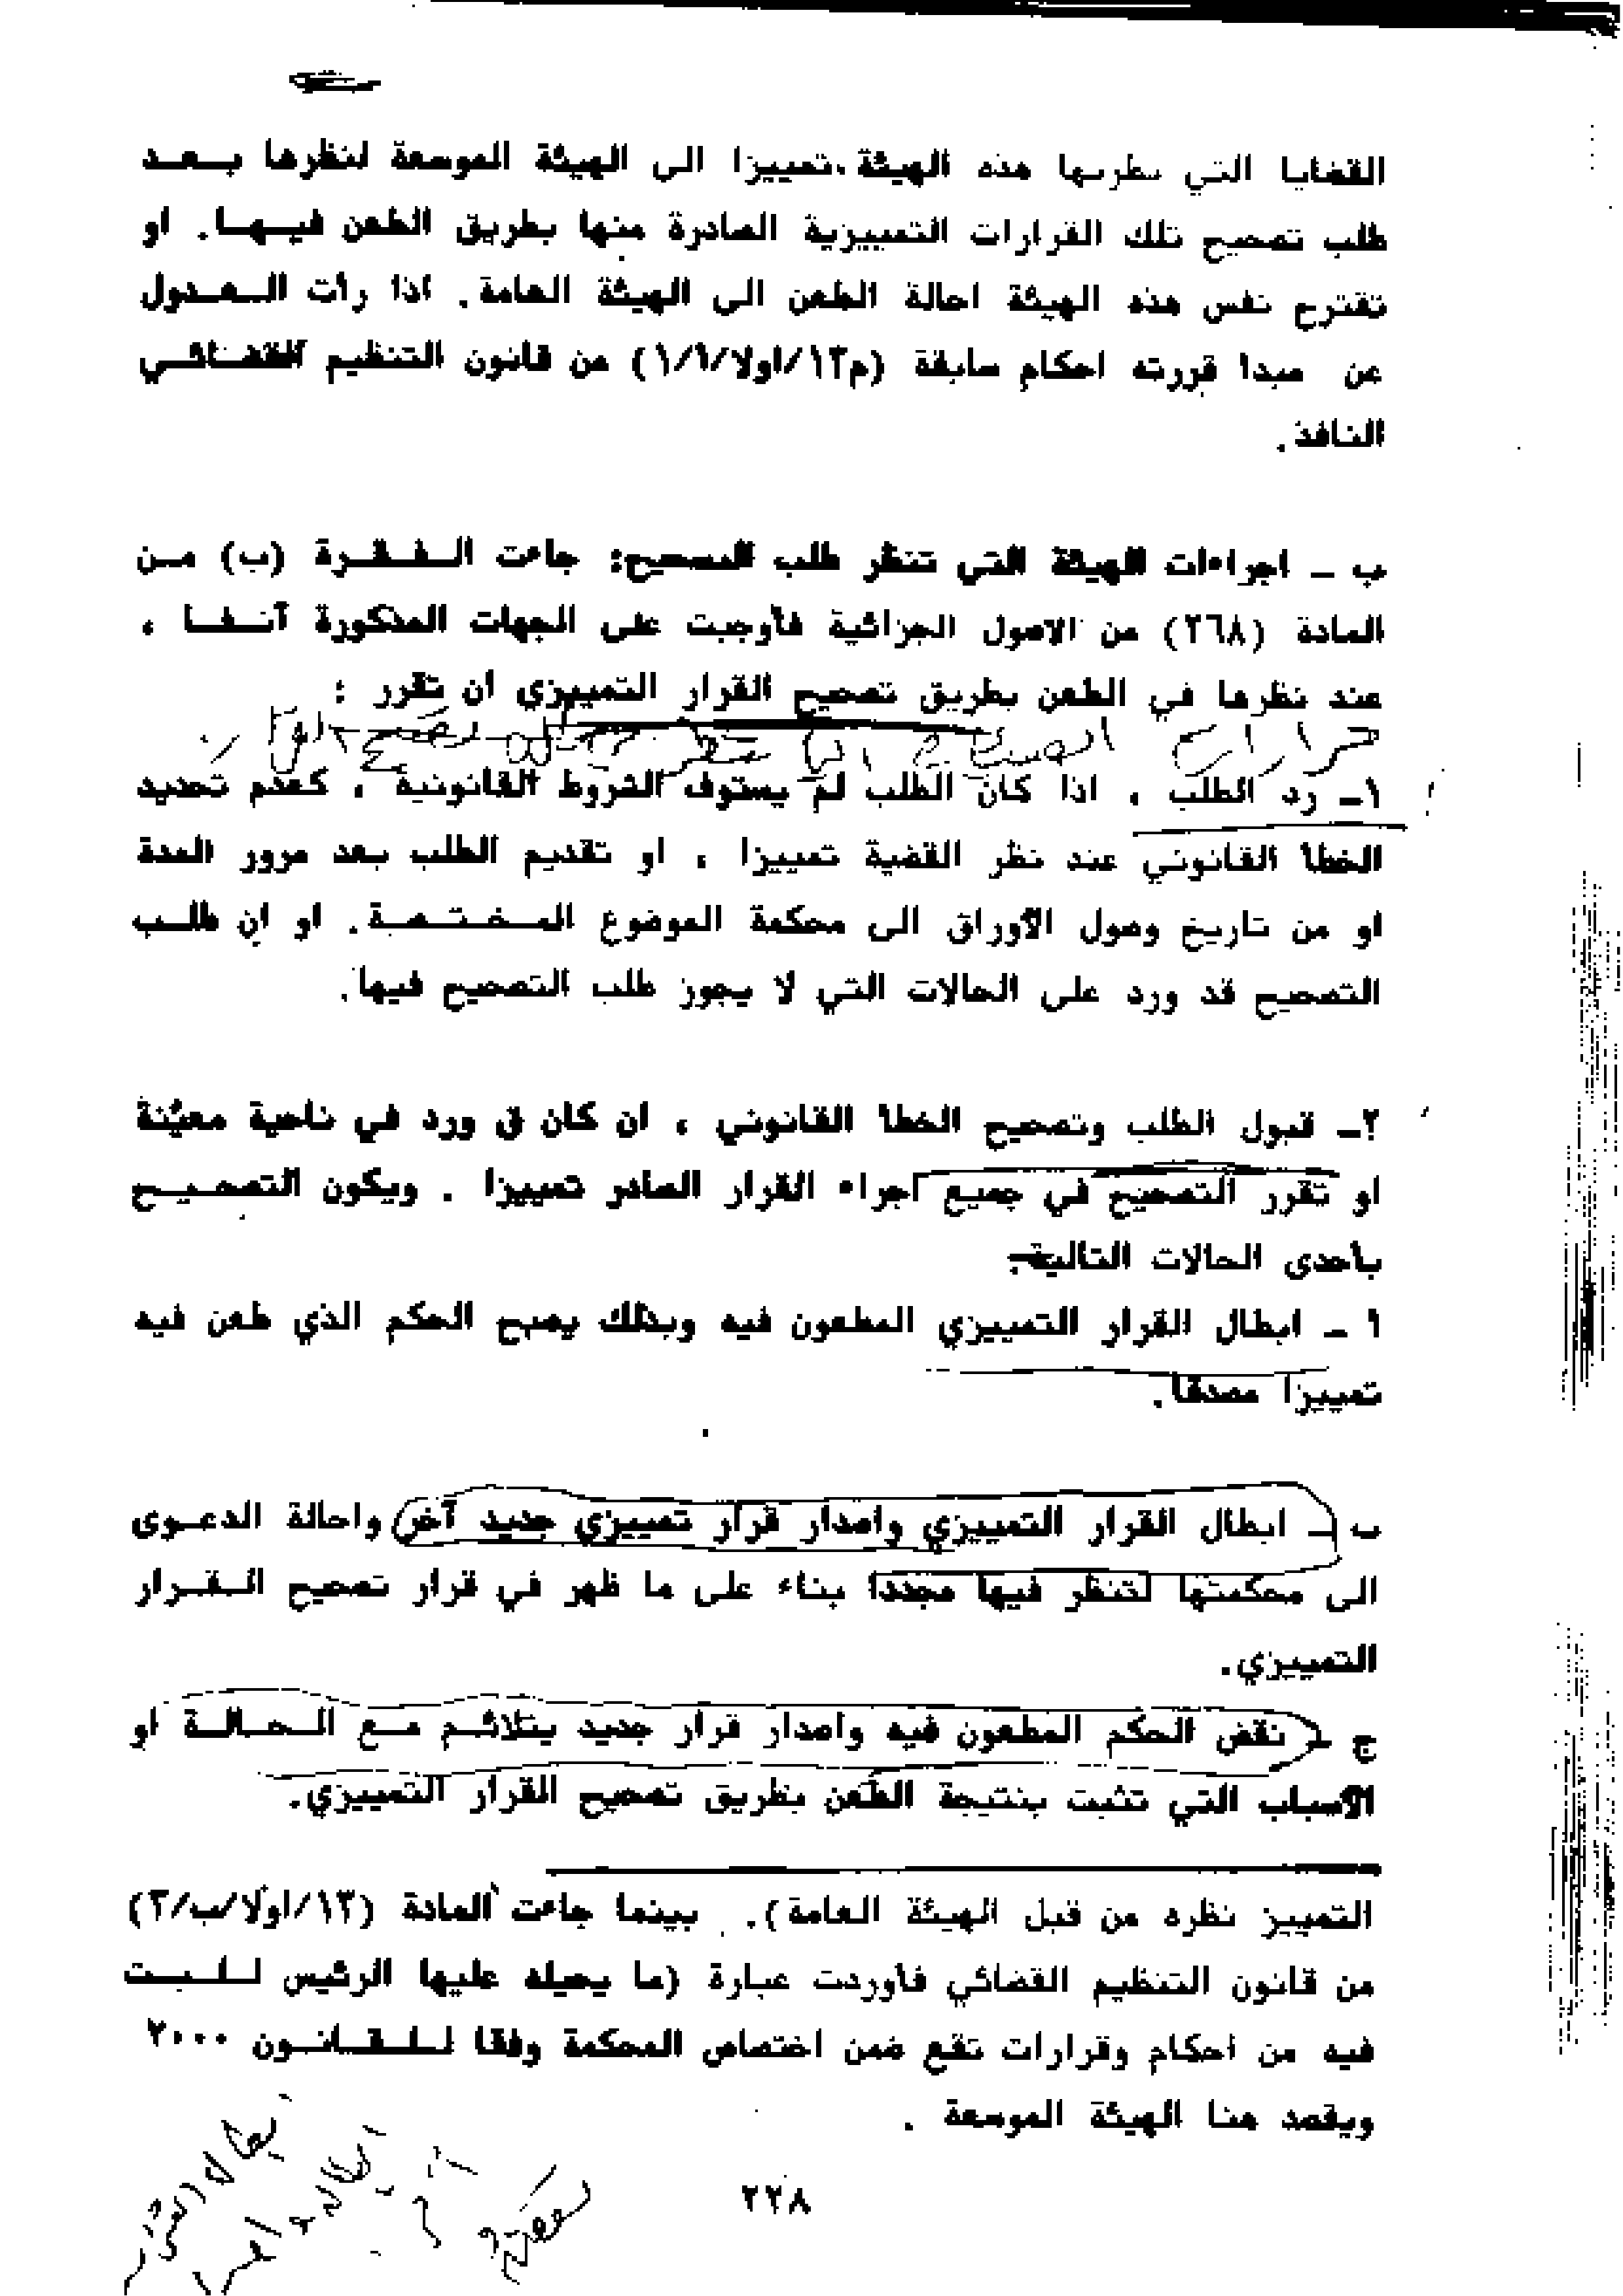 القضايا التي هذه الهيئة تمييزا الى الهيئة الموسعة لنظرها بـعـد
طلب تصحيح تلك القرارات التمييزية الصادرة منها بطريق الطعن فيـهـا. او
تقترح نفس هذه الهيئة احالة الطعن الى الهيئة العامة. اذا رأت الـعـدول
عن مبدا قررته احكام سابقة (م١٣/اولا/١/١) من قانون التنظيم القضـائـي
النافذ.
ب ـ اجراءات الهيئة التي تنظر طلب التصحيح: جاءت الـفـقـرة (ب) مـن
المادة (٢٦٨) من الاصول الجزائية فأوجبت على الجهات المذكورة آنـفـا ،
عند نظرها في الطعن بطريق تصحيح القرار التمييزي ان تقرر :
١ـ رد الطلب ، اذا كان الطلب لم يستوف الشروط القانونية ، كعدم تحديد
الخطا القانوني عند نظر القضية تمييزا ، او تقديم الطلب بعد مرور المدة
او من تاريخ وصول الأوراق الى محكمة الموضوع المـخـتـصـة. او ان طلـب
التصحيح قد ورد على الحالات التي لا يجوز طلب التصحيح فيها.
٢ـ قبول الطلب وتصحيح الخطا القانوني ، ان كان ق ورد في ناحية معيّنة
او تقرر التصحيح في جميع اجراء القرار الصادر تمييزا . ويكون التصحـيـح
بأحدى الحالات التالية.
١ ـ ابطال القرار التمييزي المطعون فيه وبذلك يصبح الحكم الذي طعن فيه
تمييزا مصدقا.
ب ـ ابطال القرار التمييزي واصدار قرار تمييزي جديد آخر واحالة الدعـوى
الى محكمتها لتنظر فيها مجددا بناء على ما ظهر في قرار تصحيح الـقـرار
التمييزي.
ج ـ نقض الحكم المطعون فيه واصدار قرار جديد يتلائـم مـع الـحـالـة او
الأسباب التي تثبت بنتيجة الطعن بطريق تصحيح القرار التمييزي.
التمييز نظره من قبل الهيئة العامة). بينما جاءت المادة (١٣/اولا/ب/٢)
من قانون التنظيم القضائي فأوردت عبارة (ما يحيله عليها الرئيس لـلـبـت
فيه من احكام وقرارات تقع ضمن اختصاص المحكمة وفقا لـلـقـانـون ٢٠٠٠
ويقصد هنا الهيئة الموسعة .
٢٢٨